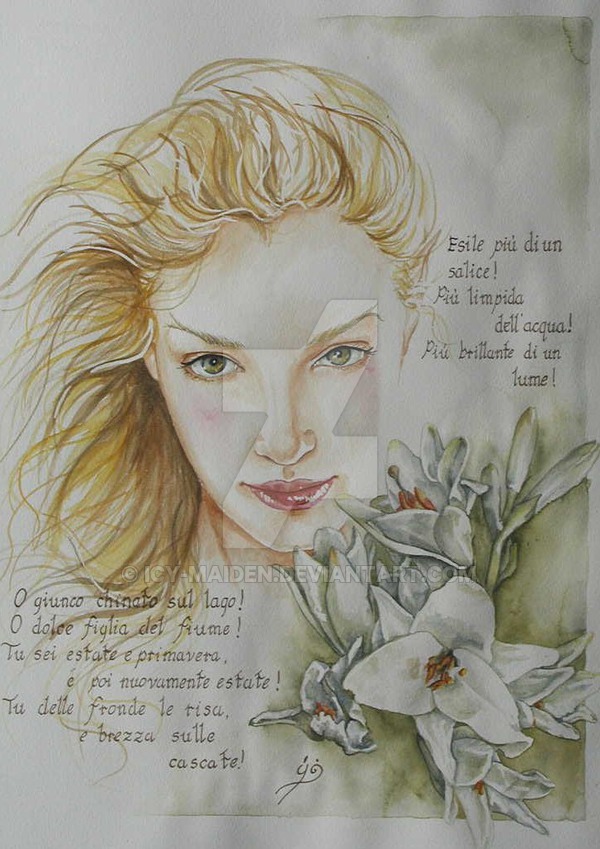 Esile più di un
salice!
Più limpida
dell'acqua!
Più brillante di un
lume!
© ICY-MAIDEN.DEVIANTART.COM
O giunco chinato sul lago!
O dolce figlia del fiume!
Tu sei estate e primavera,
e poi nuovamente estate!
Tu delle fronde le risa,
e brezza sulle
cascate!